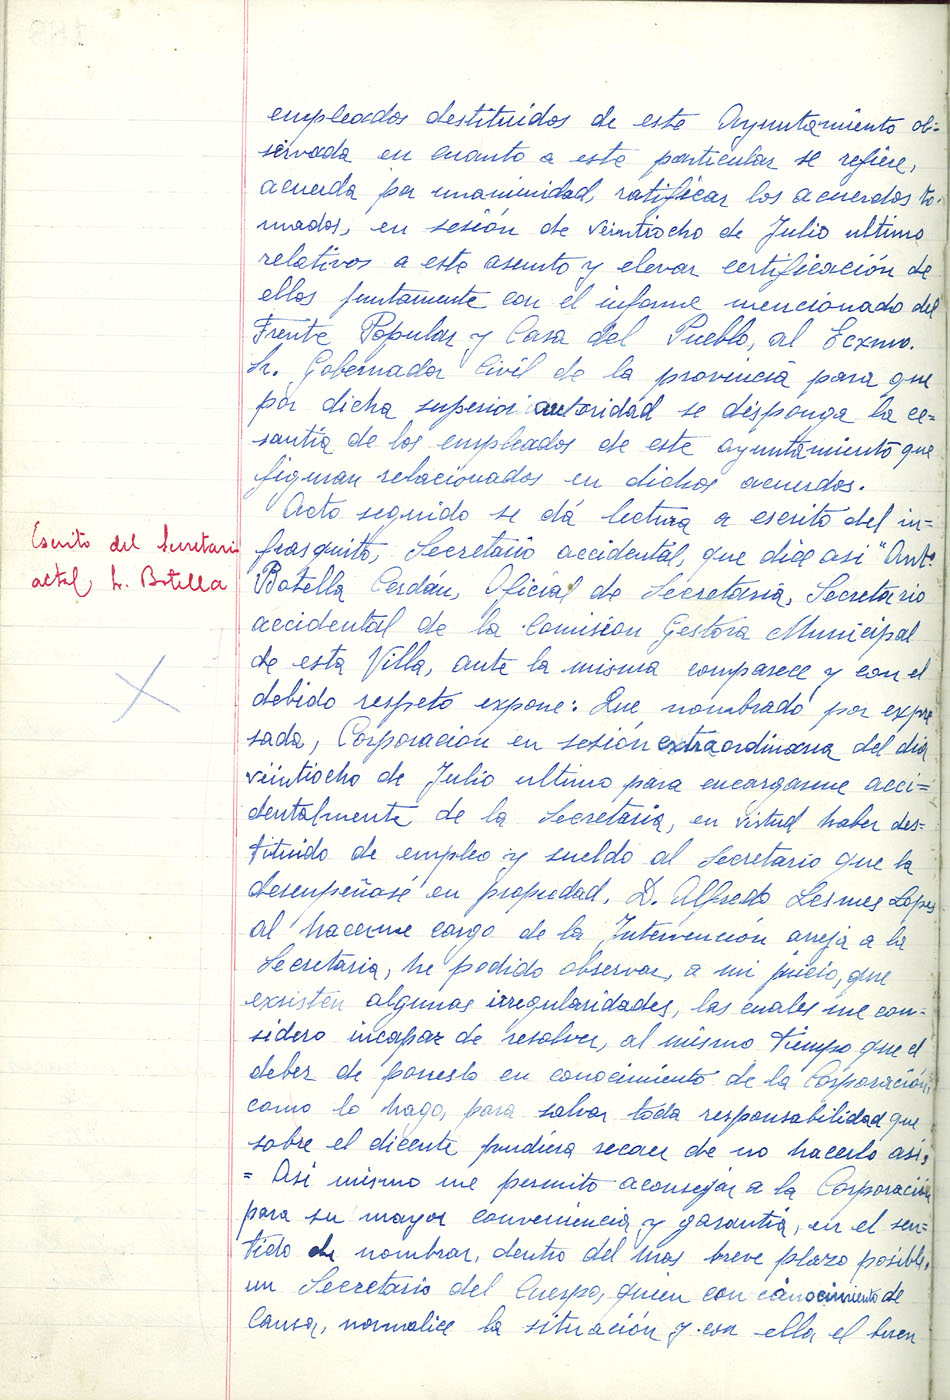 empleados destituidos de este Ayuntamiento ob=
servada en cuanto a este particular se refiere,
acuerda por unaminidad, ratificar los acuerdos to-
mados, en sesión de veintiocho de Julio ultimo
relativos a este asunto y elevar certificación de
ellos juntamente con el informe mencionado del
Frente Popular y Casa del Pueblo, al Ecxmo.
Sr. Gobernador Civil de la provincia para que
por dicha superior autoridad se disponga la ce=
santía de los empleados de este ayuntamiento que
figuran relacionados en dichos acuerdos.
Acto seguido se dá lectura a escrito del in=
frasquito, Secretario accidental, que dice asi "Antº
Botella Cerdán, Oficial de Secretaria, Secretario
accidental de la Comision Gestora Municipal
de esta Villa, ante la misma comparece y con el
debido respeto expone: Que nombrado por expre
sada, Corporación en sesión extraordinaria del dia
veintiocho de Julio ultimo para encargarme acci=
dentalmente de la Secretaria, en virtud haber des=
tituido de empleo y sueldo al Secretario que la
desempeñase en propiedad, D. Alfredo Lesmes Lopes
al hacerme cargo de la Intervención aneja a la
Secretaria, he podido observar, a mi juicio, que
exsisten algunas irregularidades, las cuales me con=
sidero incapaz de resolver, al mismo tiempo que el
deber de ponerlo en conocimiento de la Corporación,
como lo hago, para salvar toda responsabilidad que
sobre el dicente pudiera recaer de no hacerlo asi,
= Asi mismo me permito aconsejar a la Corporación
para su mayor conveniencia y garantia, en el sen=
tido de nombrar, dentro del mas breve plazo posible,
un Secretario del Cuerpo, quien con conocimiento de
Causa, normalice la situación y con ella el buen
Escrito del Secretario
actal, Sr. Botella